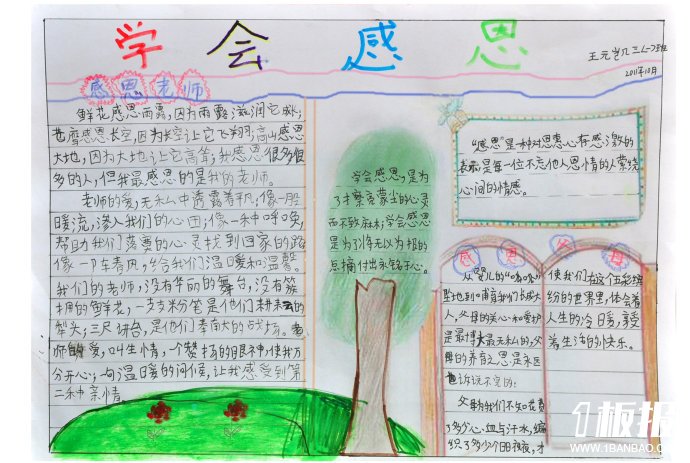 学会感恩
王元岂几三(一)班
2011年10月
感恩老师
鲜花感恩雨露,因为雨露滋润它成长,
苍雪感恩长空,因为长空让它飞翔;高山感恩
大地,因为大地让它高耸;我感恩很多很
多的人,但我最感恩的是我的老师。
老师的爱,无私中透露着平凡,像一股
暖流,渗入我们的心田;像一种呼唤,
帮助我们落寞的心灵找到回家的路;
像一阵春风,给我们温暖和温馨。
我们的老师,没有华丽的舞台,没有簇
拥的鲜花,一支支粉笔是他们耕耘的
犁头;三尺讲台,是他们奉献的战场。老
师的爱,叫生情,一个赞扬的眼神,使我万
分开心;一句温暖的问候,让我感受到第
二种亲情。
学会感恩,是为
了擦亮蒙尘的心灵
而不致麻木;学会感恩
是为了将无以为报的
点滴付出永铭于心。
"感恩"是一种对恩惠心存感激的
表示是每一位不忘他人恩情的人萦绕
心间的情感。
感恩父母
从婴儿的"哇哇"
坠地到哺育我们长成大
人,父母的关心和爱护
是最博大最无私的,父
母的养育之恩是永远
也诉说不完的:
父母为我们不知花费
了多少心血与汗水,编
织了多少个日日夜夜,才
使我们在这个五彩缤
纷的世界里,体会着
人生的冷暖,享受
着生活的快乐。
1板报
WWW.1BANBAO.COM